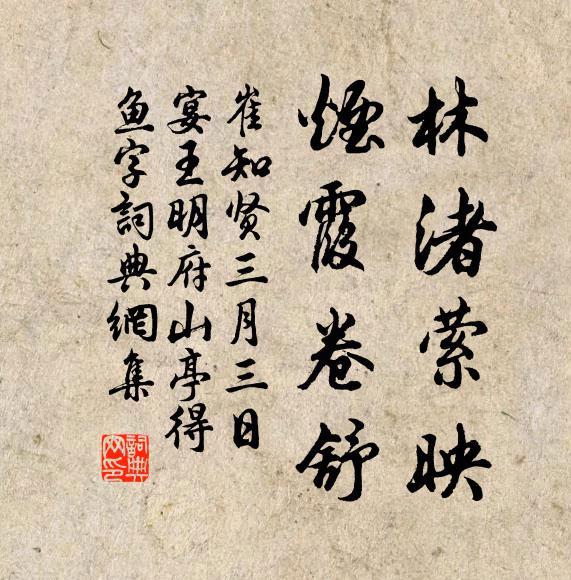 林渚萦映
煙霞卷舒
崔知贤三月三日
宴王明府山亭得
鱼字詞典網集
詞典
网印